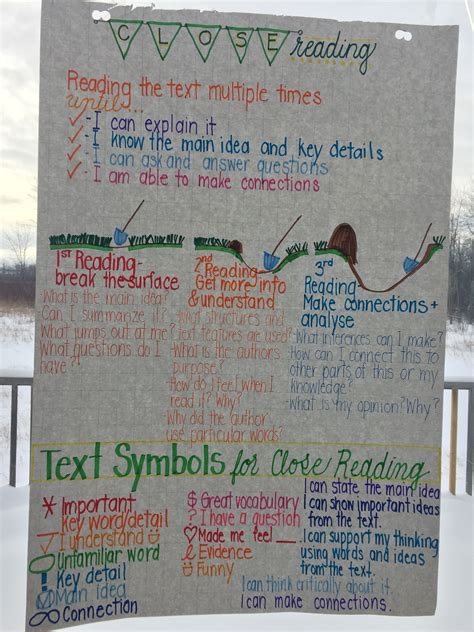 CLOSE reading
Reading the text multiple times
until...
- I can explain it
- I know the main idea and key details
- I can ask and answer questions
- I am able to make connections
1st Reading-
break the surface
What is the main idea?
Can I summarize it?
What jumps out at me?
What questions do I
have?
2nd
Reading-
Get more info
& understand
What structures and
text features are used?
What is the author's
purpose?
How do I feel when I
read it? Why?
Why did the author
use particular words?
3rd
Reading-
Make connections +
analyse
What inferences can I make?
How can I connect this to
other parts of this or my
knowledge?
What is my opinion? Why?
Text Symbols for Close Reading
* Important
Key word/detail
I understand
Unfamiliar word
! Key detail
Main Idea
Connection
$ Great vocabulary
? I have a question
Made me feel __
Evidence
Funny
I can state the main idea
I can show important ideas
from the text.
I can support my thinking
using words and ideas
from the text.
I can think critically about it.
I can make connections.